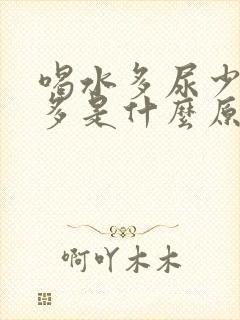 喝水多尿少
多是什麼原
啊吖木木